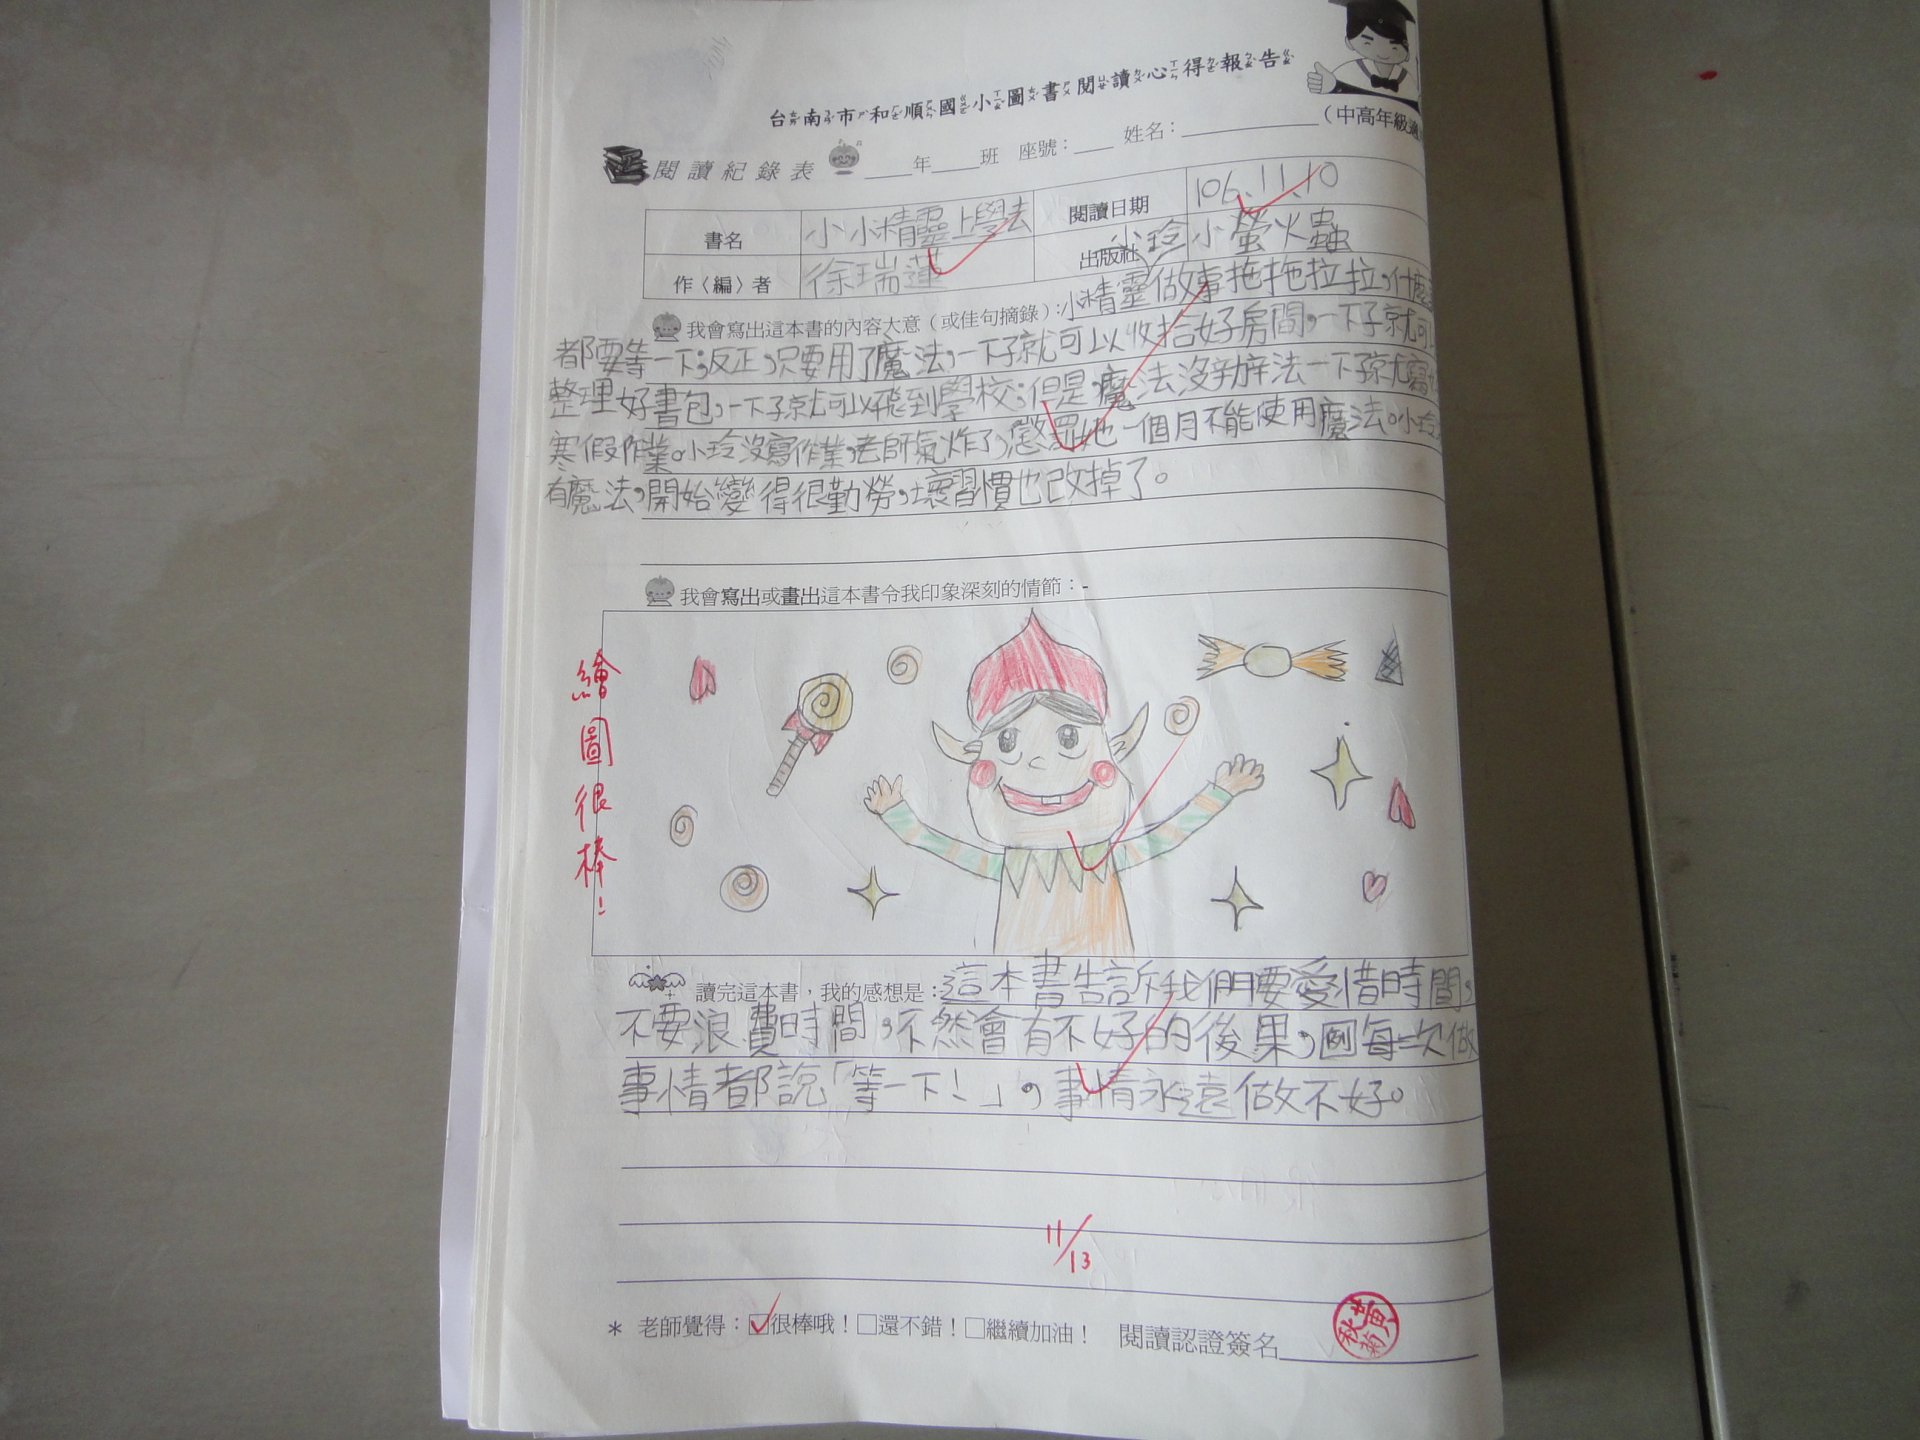 台南市和順國小圖書閱讀心得報告
（中高年級適
閱讀紀錄表 ____年____班 座號：___ 姓名：__________
書名 小小精靈上學去 閱讀日期 106.11.10
作〈編〉者 徐瑞蓮 出版社 小螢火蟲
我會寫出這本書的內容大意（或佳句摘錄）：小玲小精靈做事拖拖拉拉，什麼
都要等一下；反正，只要用了魔法，一下子就可以收拾好房間，一下子就可
整理好書包，一下子就可以飛到學校；但是，魔法沒辦法一下子就寫
寒假作業。小玲沒寫作業，老師氣炸了，懲罰她一個月不能使用魔法。小玲
有魔法，開始變得很勤勞，壞習慣也改掉了。
我會寫出或畫出這本書令我印象深刻的情節：
繪圖很棒！
讀完這本書，我的感想是：這本書告訴我們要愛惜時間，
不要浪費時間，不然會有不好的後果，每次做
事情都說「等一下！」，事情永遠做不好。
11/13
＊ 老師覺得：☑很棒哦！□還不錯！□繼續加油！ 閱讀認證簽名
黃秋菊